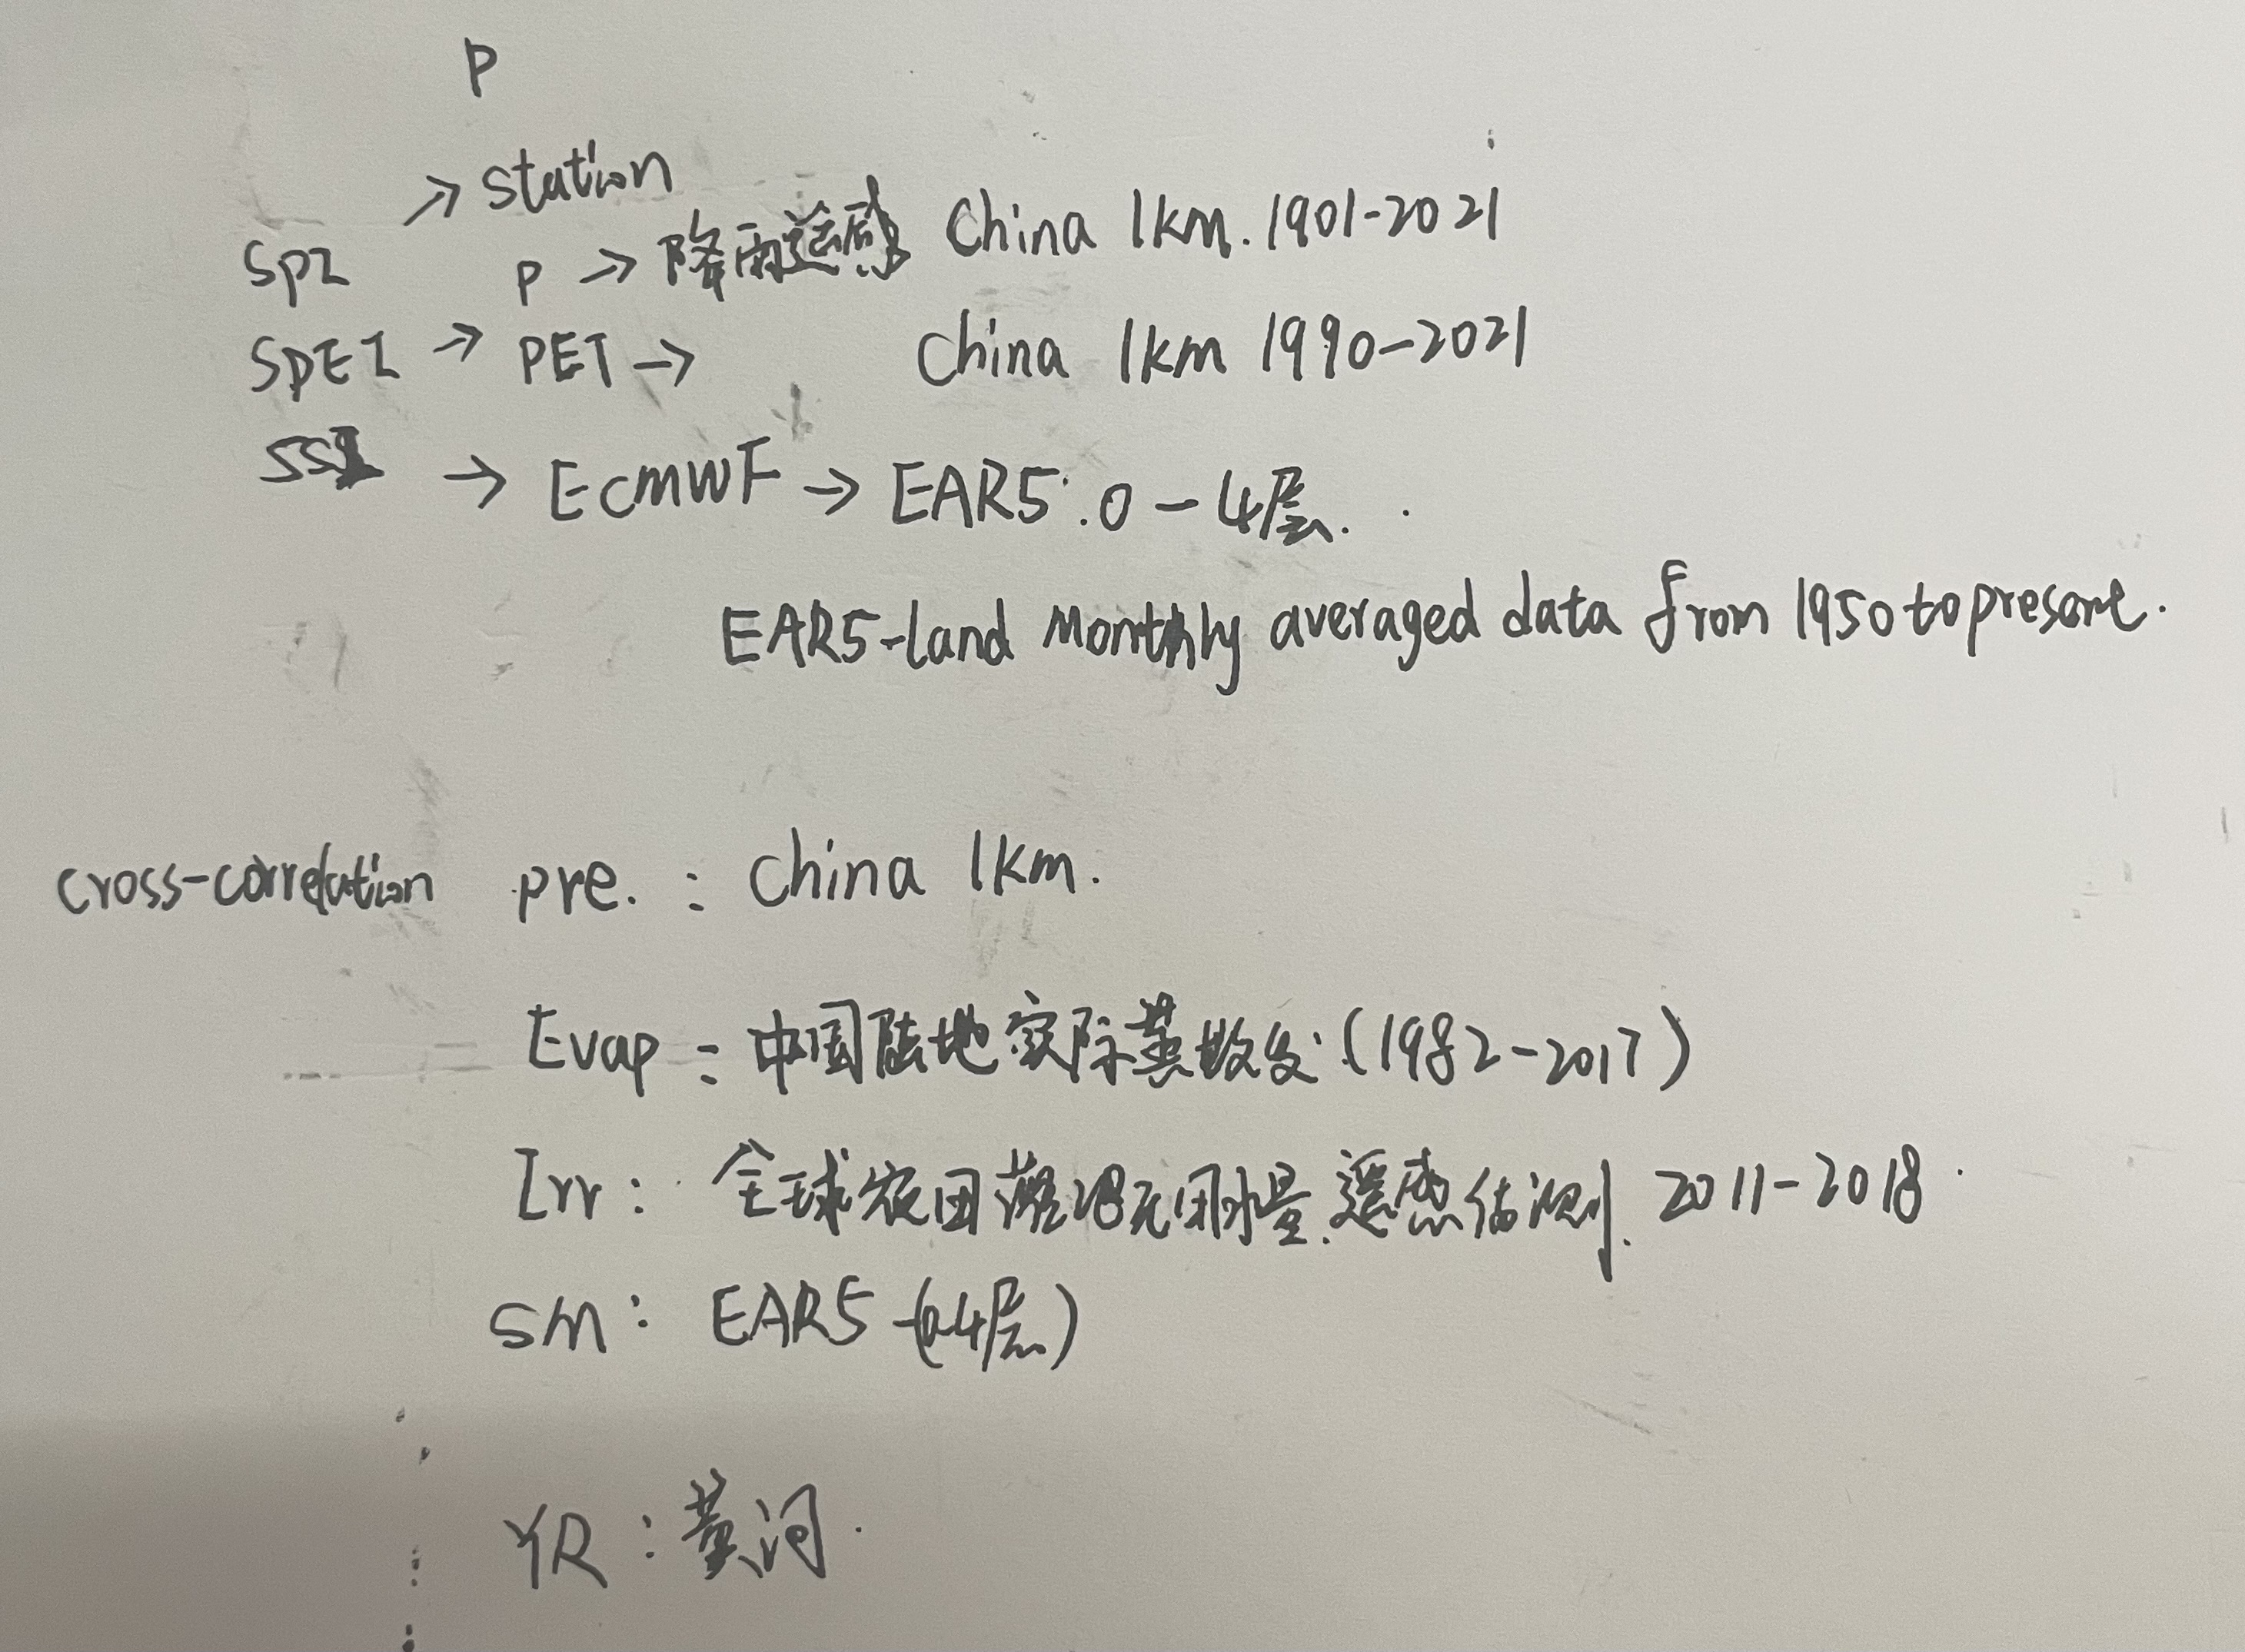 P
→ Station
SPI P → 降雨遥感 China 1km. 1901-2021
SPEI → PET → China 1km 1990-2021
SSI → ECMWF → EAR5: 0-4层.
EAR5-land Monthly averaged data from 1950 to present.
cross-correlation pre. : China 1km.
Evap : 中国陆地实际蒸散发 (1982-2017)
Irr : 全球农田灌溉 用水量 遥感估测. 2011-2018
SM : EAR5 (0-4层)
YR : 黄河.